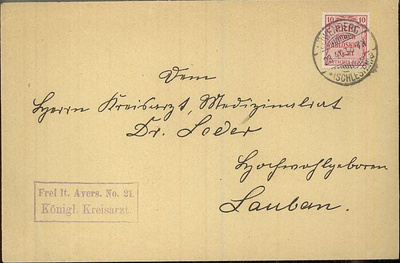 10 10
(SCHLESIEN)
Dem
Herrn Kreisarzt, Medizinalrat
Dr. Loder
Hochwohlgeboren
Lauban.
Frei lt. Avers. No. 21.
Königl. Kreisarzt.